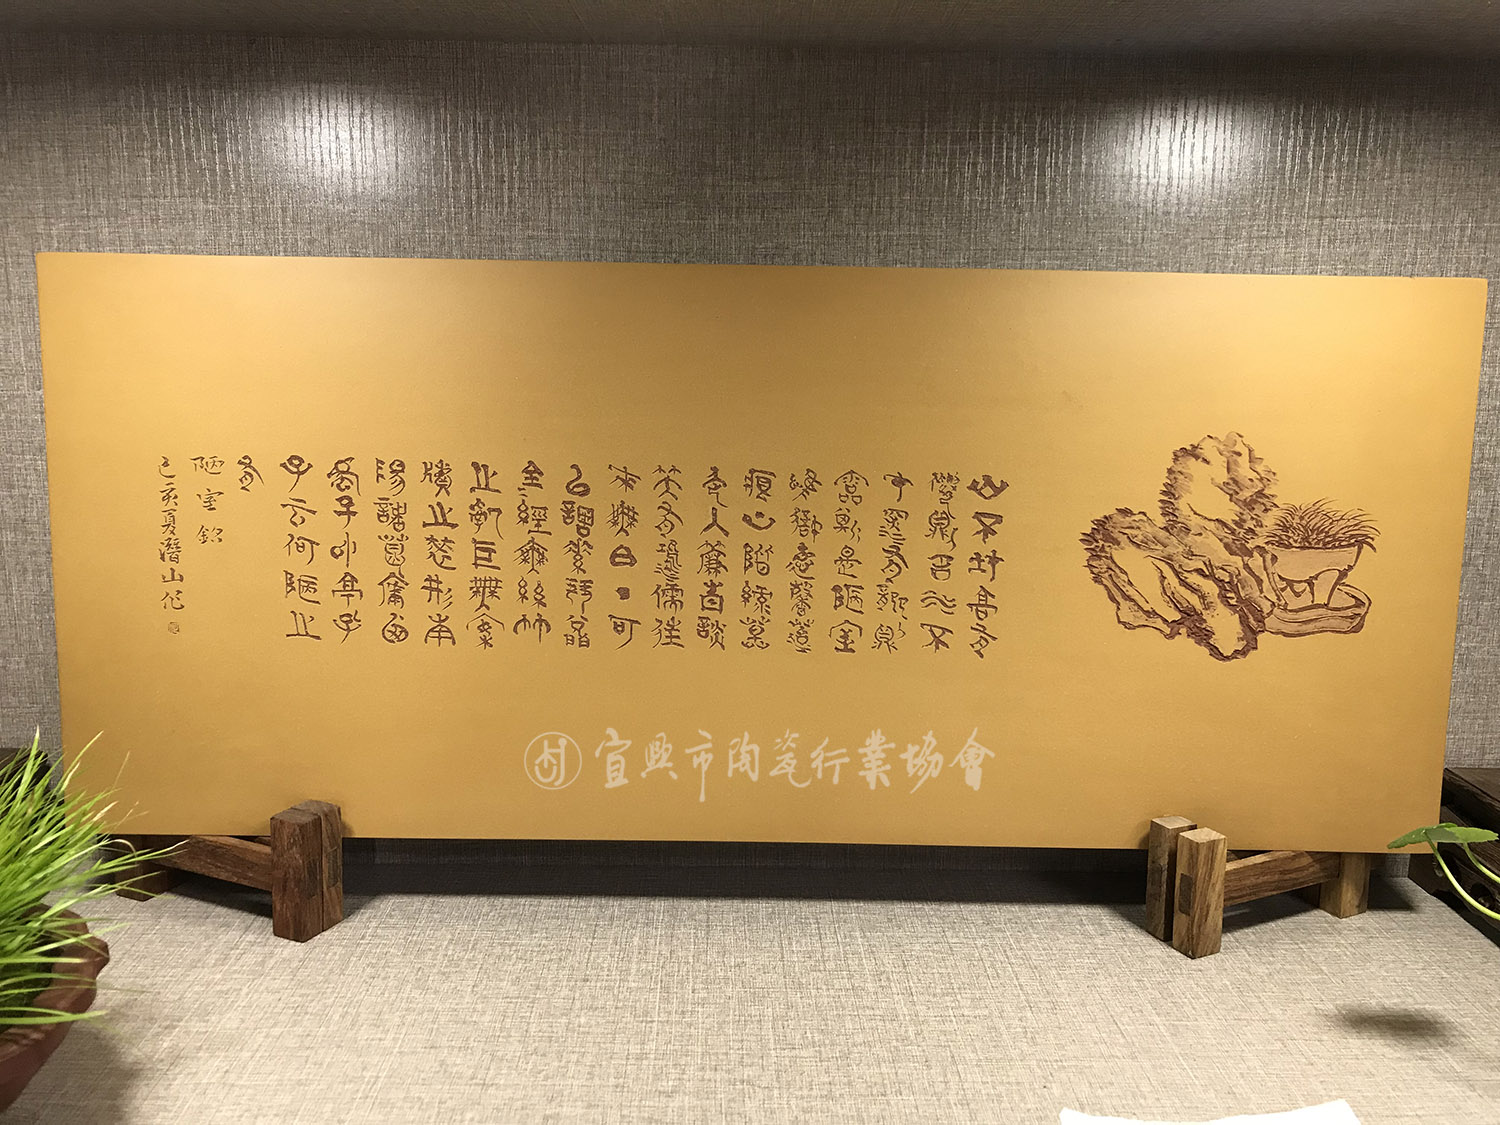 山不在高有
僊則名水不
在深有龍則
靈斯是陋室
惟吾德馨苔
痕上階綠草
色入簾青談
笑有鴻儒往
來無白丁可
以調素琴閱
金經無絲竹
之亂耳無案
牘之勞形南
陽諸葛廬西
蜀子雲亭孔
子云何陋之
有
陋室銘
己亥夏潛山作
宜興市陶瓷行業協會